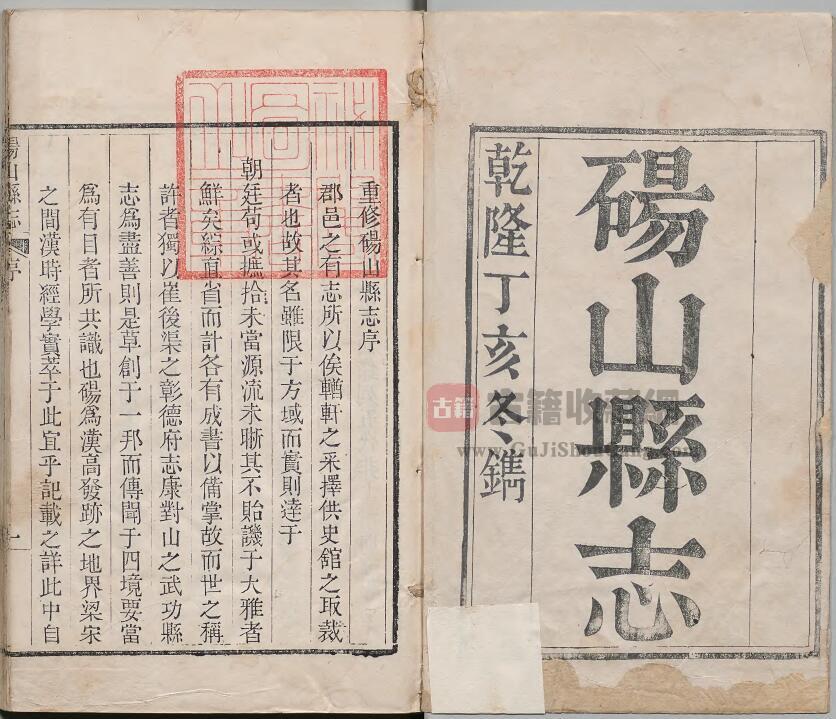 碭山縣志
乾隆丁亥冬鐫
重修碭山縣志序
郡邑之有志所以俟輶軒之采擇供史舘之取裁
者也故其名雖限于方域而實則達于
朝廷苟或摭拾未當源流未晰其不貽譏于大雅者
鮮矣綜直省而計各有成書以備掌故而世之稱
許者獨以崔後渠之彰德府志康對山之武功縣
志爲盡善則是草創于一邦而傳聞于四境要當
爲有目者所共識也碭爲漢高發跡之地界梁宋
之間漢時經學實萃于此宜乎記載之詳此中自
碭山縣志
序
一
古籍
古籍收藏網
www.GuJiShouCang.com